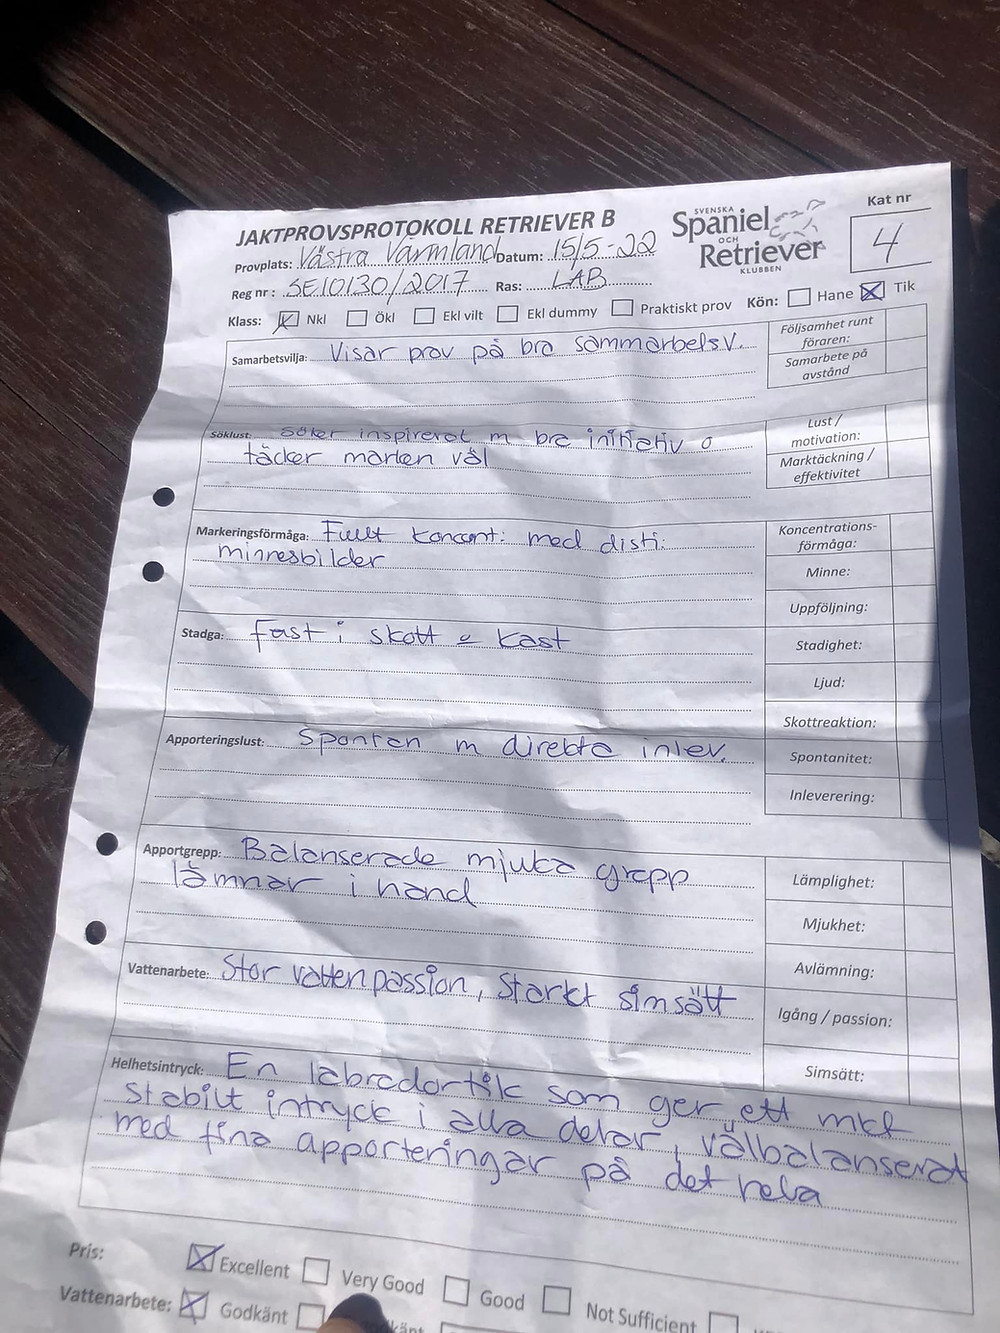 JAKTPROVSPROTOKOLL RETRIEVER B
SVENSKA
Spaniel
OCH
Retriever
KLUBBEN
Kat nr
4
Provplats: Västra Värmland Datum: 15/5-22
Reg nr: SE10130/2017 Ras: LAB
Klass: Nkl Ökl Ekl vilt Ekl dummy Praktiskt prov Kön: Hane Tik
Samarbetsvilja: Visar prov på bra sammarbetsv.
Följsamhet runt
föraren:
Samarbete på
avstånd
Söklust: Söker inspirerat m bra initiativ o
täcker marken väl
Lust /
motivation:
Marktäckning /
effektivitet
Markeringsförmåga: Fullt koncent. med disti.
minnesbilder
Koncentrations-
förmåga:
Minne:
Uppföljning:
Stadga: Fast i skott o kast
Stadighet:
Ljud:
Skottreaktion:
Apporteringslust: Spontan m direkta inlev.
Spontanitet:
Inleverering:
Apportgrepp: Balanserade mjuka grepp
lämnar i hand
Lämplighet:
Mjukhet:
Avlämning:
Vattenarbete: Stor vattenpassion, starkt simsätt
Igång / passion:
Simsätt:
Helhetsintryck: En labradortik som ger ett mkt
stabilt intryck i alla delar, välbalanserat
med fina apporteringar på det hela
Pris: Excellent Very Good Good Not Sufficient
Vattenarbete: Godkänt